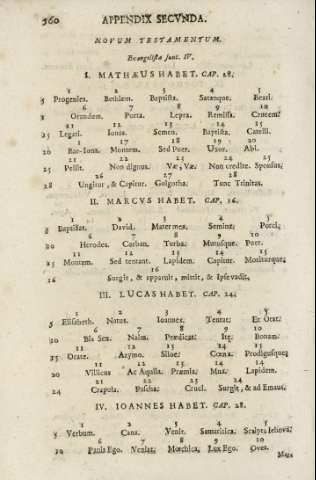 360 APPENDIX SECVNDA.
NOVUM TESTAMENTUM.
Evangelistæ sunt. IV.
I. MATHÆUS HABET. CAP. 28.
1 2 3 4 5
5 Progenies. Bethlem. Baptista. Satanque. Beati.
6 7 8 9 10
Orandem. Porta. Lepra. Remissa.
11 12 13 14 15
15 Legati. Ionas. Semen. Baptista. Catelli.
16 17 18 19 20
20 Bar-Iona. Montem. Sed Puer. Uxor. Abi.
21 22 23 24 25
25 Pullit. Non dignus. Væ, Væ. Non credite. Sponsus,
26 27 28
28 Ungitur, & Capitur. Golgotha: Tunc Trinitas.
II. MARCVS HABET. CAP. 16.
1 2 3 4 5
5 Baptistat. David. Mater mea. Semine, Porci,
6 7 8 9 10
10 Herodes. Corban. Turba. Mutusque. Puer.
11 12 13 14 15
15 Montem. Sed tentant. Lapidem. Capitur. Moriturque;
16
16 Surgit, & apparuit, mittit, & Ipse vadit,
III. LUCAS HABET. CAP. 24;
1 2 3 4 5
5 Elisabeth. Natus. Ioannes, Tentat: Et Orat:
6 7 8 9 10
10 Bis Sex. Naim. Prædicat: Ite, Bonam.
11 12 13 14 15
15 Orate. Azymo. Siloe: Cœna. Prodigusque;
16 17 18 19 20
20 Villicus Ac Aqualis. Præmia. Mna. Lapidem.
21 22 23 24
24 Crapula. Pascha: Cruci. Surgit, & ad Emaus.
IV. IOANNES HABET. CAP. 28.
1 2 3 4 5
5 Verbum. Cana. Venit. Samaritica. Scalpta
6 7 8 9 10
10 Panis Ego. Venias. Mœchica, Lux Ego. Oves.